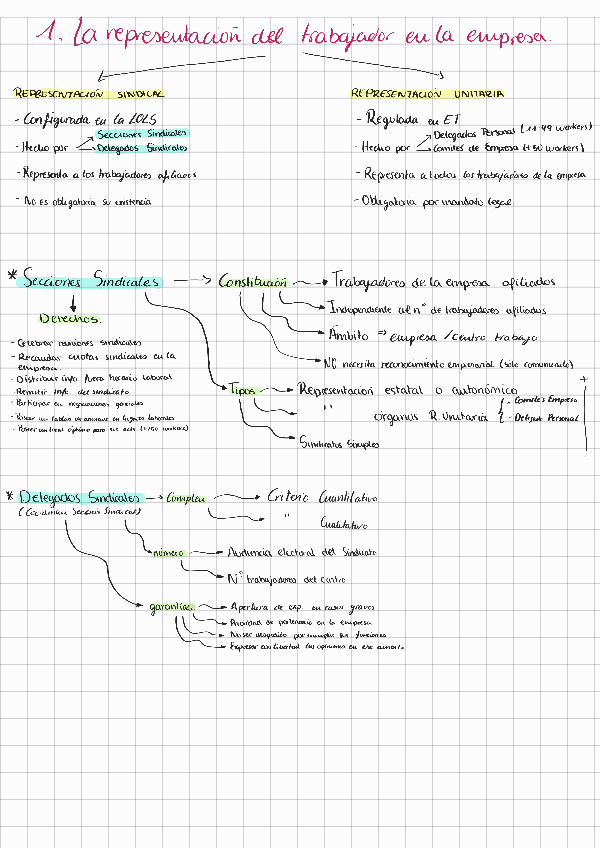 1. La representación del trabajador en la empresa.
REPRESENTACIÓN SINDICAL
- Configurada en la LOLS
- Hecho por
Secciones Sindicales
Delegados Sindicales
- Representa a los trabajadores afiliados
- No es obligatoria su existencia
REPRESENTACIÓN UNITARIA
- Regulada en ET
- Hecho por
Delegados Personal (11-49 workers)
Comités de Empresa (+50 workers)
- Representa a todos los trabajadores de la empresa
- Obligatoria por mandato legal
* Secciones Sindicales
Derechos.
- Celebrar reuniones sindicales
- Recaudar cuotas sindicales en la
empresa.
- Distribuir info. fuera horario laboral
- Remitir info. del sindicato
- Participar en negociaciones
- Poner un tablón de anuncios en lugares laborales
Constitución
Trabajadores de la empresa afiliados
Independiente al nº de trabajadores afiliados
Ámbito ⇒ empresa / centro trabajo
NO necesita reconocimiento empresarial (sólo comunicado)
Tipos
Representación estatal o autonómico
" órganos R. Unitaria { - Comités Empresa
- Delegat Personal
+
Sindicatos Simples
* Delegados Sindicales
(Coordinan Seccions Sindicals)
Complen
Criterio Cuantitativo
" Cualitativo
número
Audiencia electoral del Sindicato
Nº trabajadores del centro
garantías.
Apertura de exp. en casos graves
Prioridad de permanencia en la empresa
No ser despedido por sus funciones
Expresar con libertad las opiniones en ese